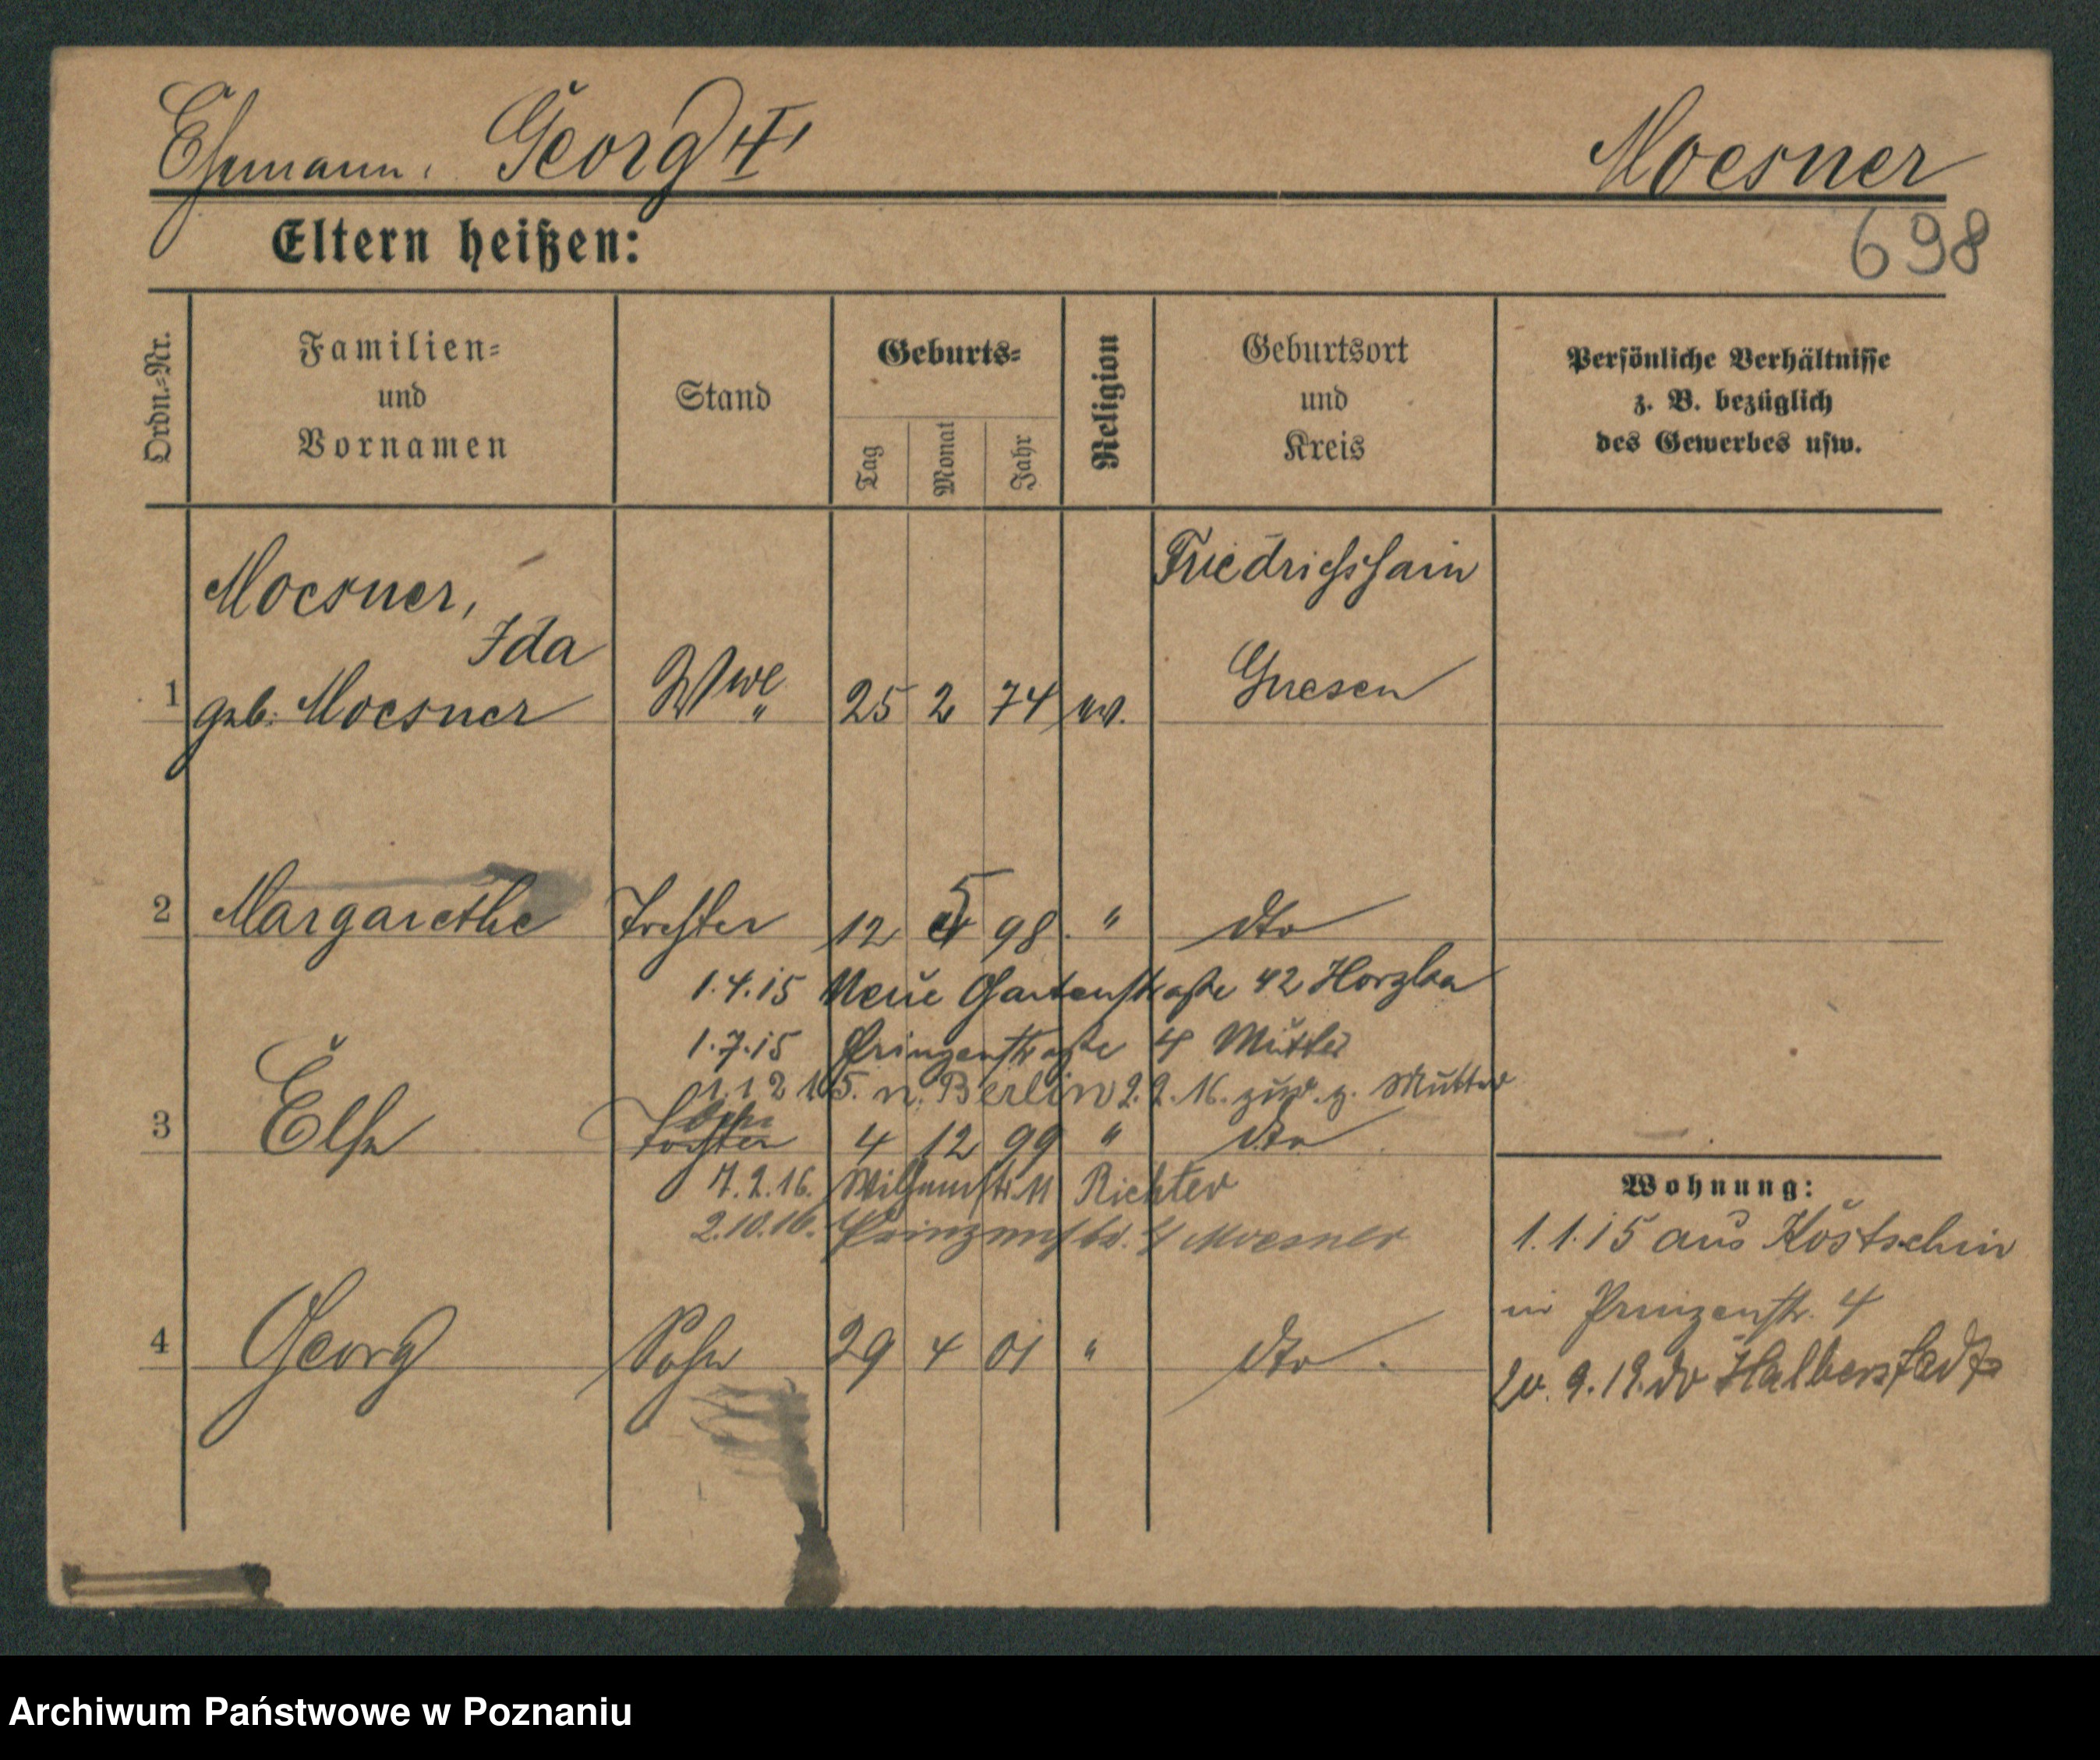 Ehemann: Georg II Moesner
698
Eltern heißen:
Ordn.-Nr.
Familien-
und
Vornamen
Stand
Geburts-
Tag
Monat
Jahr
Religion
Geburtsort
und
Kreis
Persönliche Verhältnisse
z. B. bezüglich
des Gewerbes usw.
Moesner,
Ida
1 geb. Moesner Wwe 25 2 74 ev.
Friedrichshain
Gnesen
2 Margarethe Tochter 12 5 98 " dto
1.4.15 Neue Gartenstraße 42
1.7.15 Prinzenstraße 4 Mutter
n. Berlin 2.2.16. zur. z. Mutter
3 Else Tochter 4 12 99 " dto
7.2.16. Wilhelmstr. 11 Richter
2.10.16. Prinzenstr. 4 Moesner
4 Georg Sohn 29 4 01 " dto.
Wohnung:
1.1.15 aus Kostschin
in Prinzenstr. 4
20.9.19. do Halberstadt
Archiwum Państwowe w Poznaniu